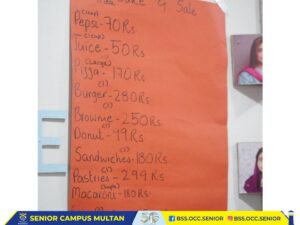 Bake & Sale
(1 cup)
Pepsi - 70 Rs
(1 cup)
Juice - 50 Rs
(Large)
Pizza - 170 Rs
(1)
Burger - 280 Rs
(1)
Brownie - 250 Rs
(1)
Donut - 49 Rs
(1)
Sandwiches - 180 Rs
(1)
Pastries - 299 Rs
Macaroni - 180 Rs
SENIOR CAMPUS MULTAN
BSS.OCC.SENIOR
BSS.OCC.SENIOR